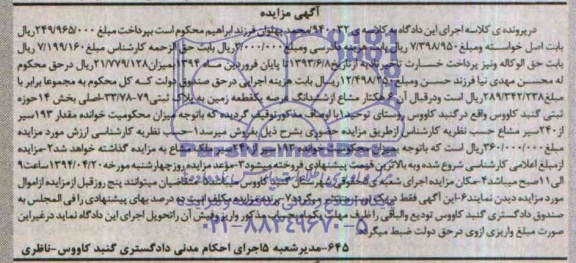 آگهی مزایده
در پرونده ی کلاسه اجرای این دادگاه به کلاسه ی محمد بهلولی فرزند ابراهیم محکوم است بپرداخت مبلغ ۲۴۹/۹۶۵/۰۰۰ ریال
بابت اصل خواسته و مبلغ ۷/۳۹۸/۹۵۰ ریال بابت هزینه دادرسی و مبلغ ریال بابت حق الزحمه کارشناس مبلغ ۷/۱۹۹/۱۶۰ ریال
بابت حق الوکاله ونیز پرداخت خسارت تاخیر تادیه از تاریخ ۱۳۹۳/۶/۸ تا پایان فروردین ۱۳۹۴ میزان ۲۱/۷۷۹/۱۲۸ ریال درحق محکوم
له محسن مهدی نیا فرزند حسن ومبلغ ریال بابت هزینه اجرایی درحق صندوق دولت که کل محکوم به مجموعا برابر با
مبلغ ۲۸۹/۳۴۲/۲۳۸ ریال است ودرقبال آن هکتار مشاع از ششدانگ عرصه یکقطعه زمین به پلاک ثبتی ۷۹-۳۳/۷۸-اصلی بخش ۱۴ حوزه
ثبتی گنبد کاووس واقع در گنبد کاووس روستای توحید با اوصاف مذکور توقیف گردیده که باتوجه میزان محکومیت خوانده مقدار ۱۹۳ سیر
از ۲۴۰ سیر مشاع حسب نظریه کارشناس از طریق مزایده حضوری بشرح ذیل بفروش میرسد ۱-حسب نظریه کارشناسی ارزش مورد مزایده
۳۶۰/۰۰۰/۰۰۰ ریال است که باتوجه میزان محکومیت خوانده ملک مشاع به مزایده گذاشته خواهد شد ۲-مزایده
از مبلغ اعلامی کارشناسی شروع شده وبه بالاترین قیمت پیشنهادی فروخته میشود ۳-موعد مزایده روز چهارشنبه مورخه ۱۳۹۴/۰۴/۲۰ ساعت ۹
الی ۱۱ صبح میباشد ۴-مکان مزایده اجرای شعبه ی حقوقی شهرستان گنبد کاووس متقاضیان میتوانند پنج روز قبل از مزایده از اموال
مورد مزایده دیدن نمایند ۶-این آگهی فقط مزایده مکلف است ده درصد بهای پیشنهادی را فی المجلس به
صندوق دادگستری گنبد کاووس تودیع والباقی را ظرف مهلت یکماه بحساب مذکور واریز وفیش آن راتحویل اجرای این دادگاه نماید درغیراین
صورت مبلغ واریزی ازوی درحق دولت ضبط میگردد
۶۴۵-مدیر شعبه ۵ اجرای احکام مدنی دادگستری گنبد کاووس-ناظری
ParsNamadData
۰۲۱-۸۸۳۴۹۶۷۰-۵